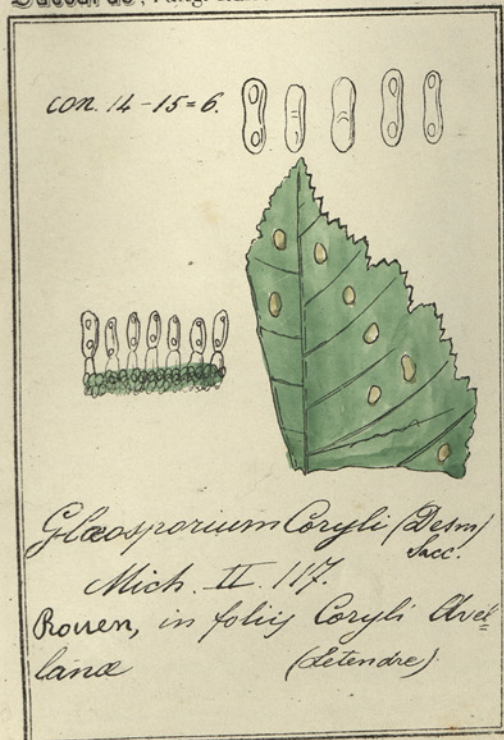 con. 14-15=6.
Glœosporium Coryli (Desm)
Sacc.
Mich. II. 117.
Rouen, in foliis Coryli Avel=
lanæ (Letendre)